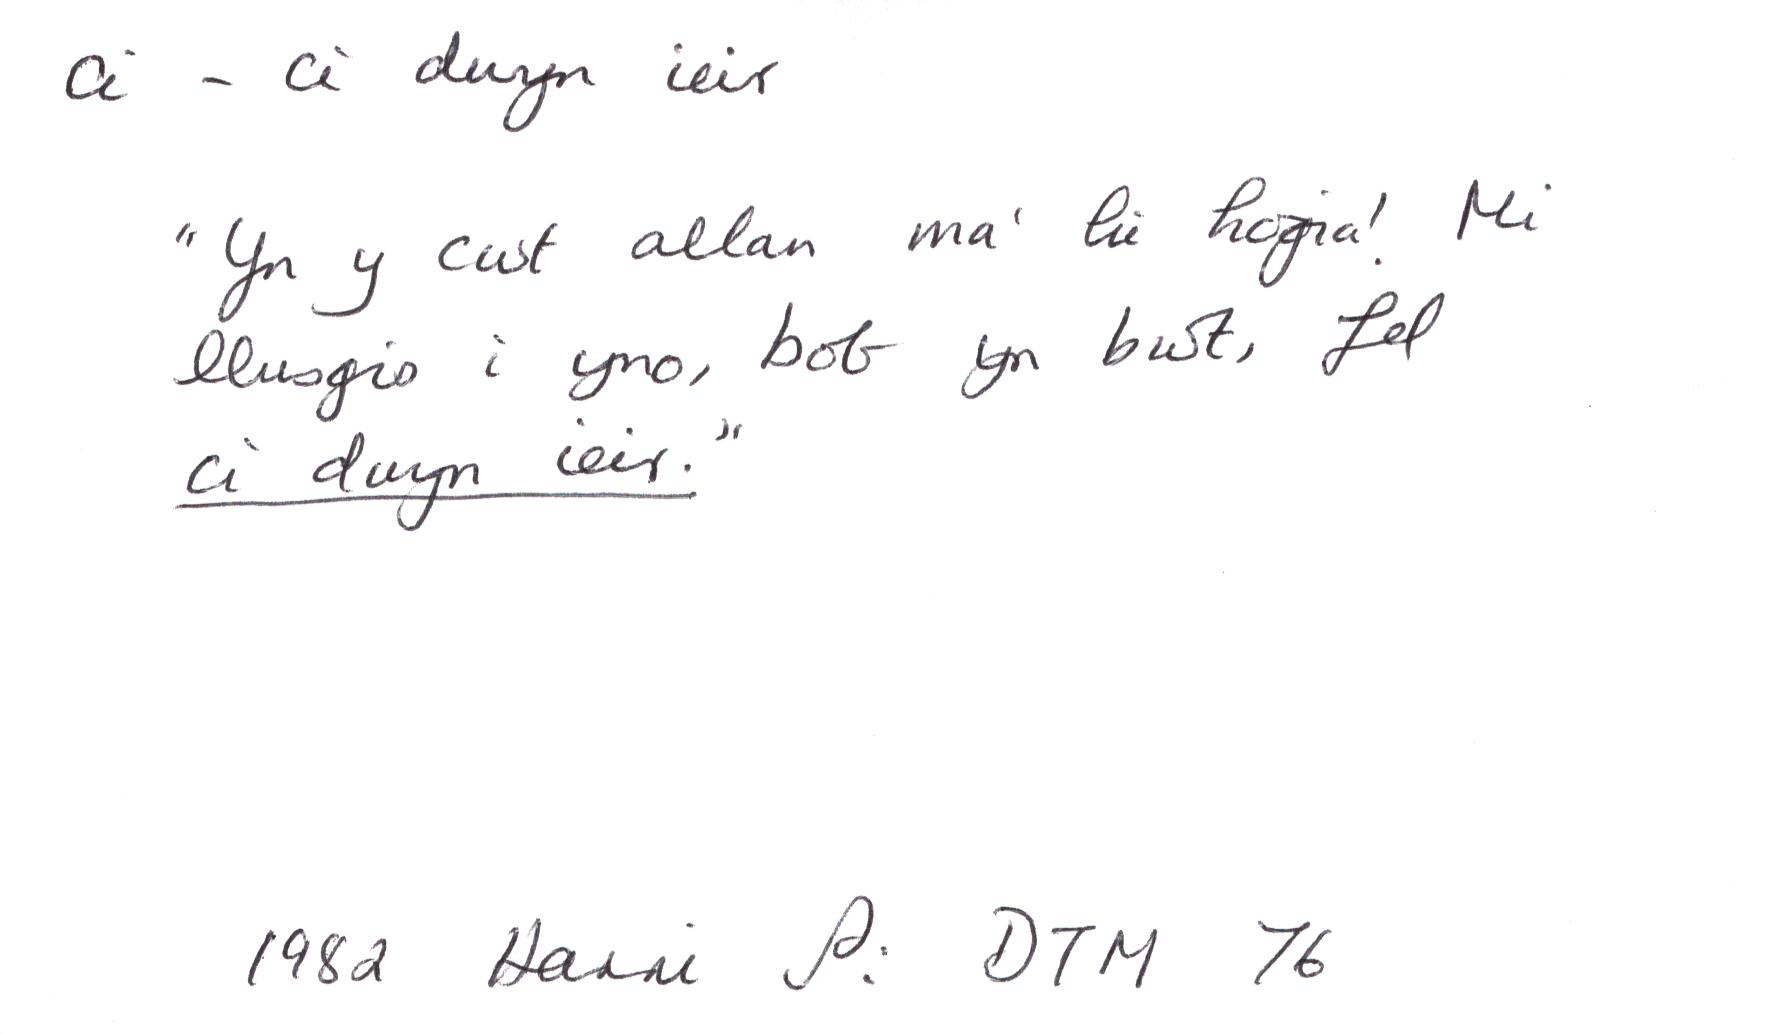 ci - ci dwyn ieir
"Yn y cwt allan ma' hi hogia! Mi
llusgis i yno, bob yn bwt, fel
ci dwyn ieir."
1982 Harri P: DTM 76